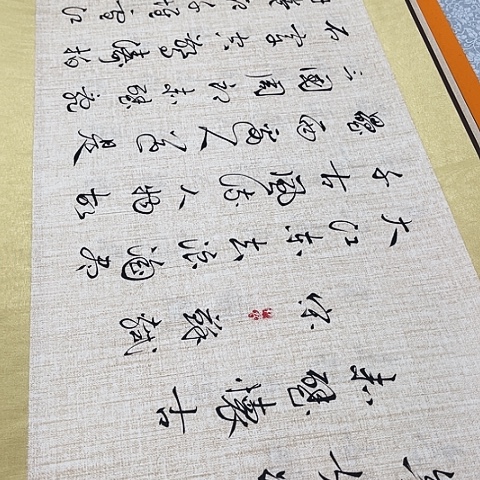 赤壁懷古
宋 蘇軾
大江東去浪淘盡
千古風流人物故
壘西邊人道是
三國周郎赤壁亂
石穿空驚濤拍